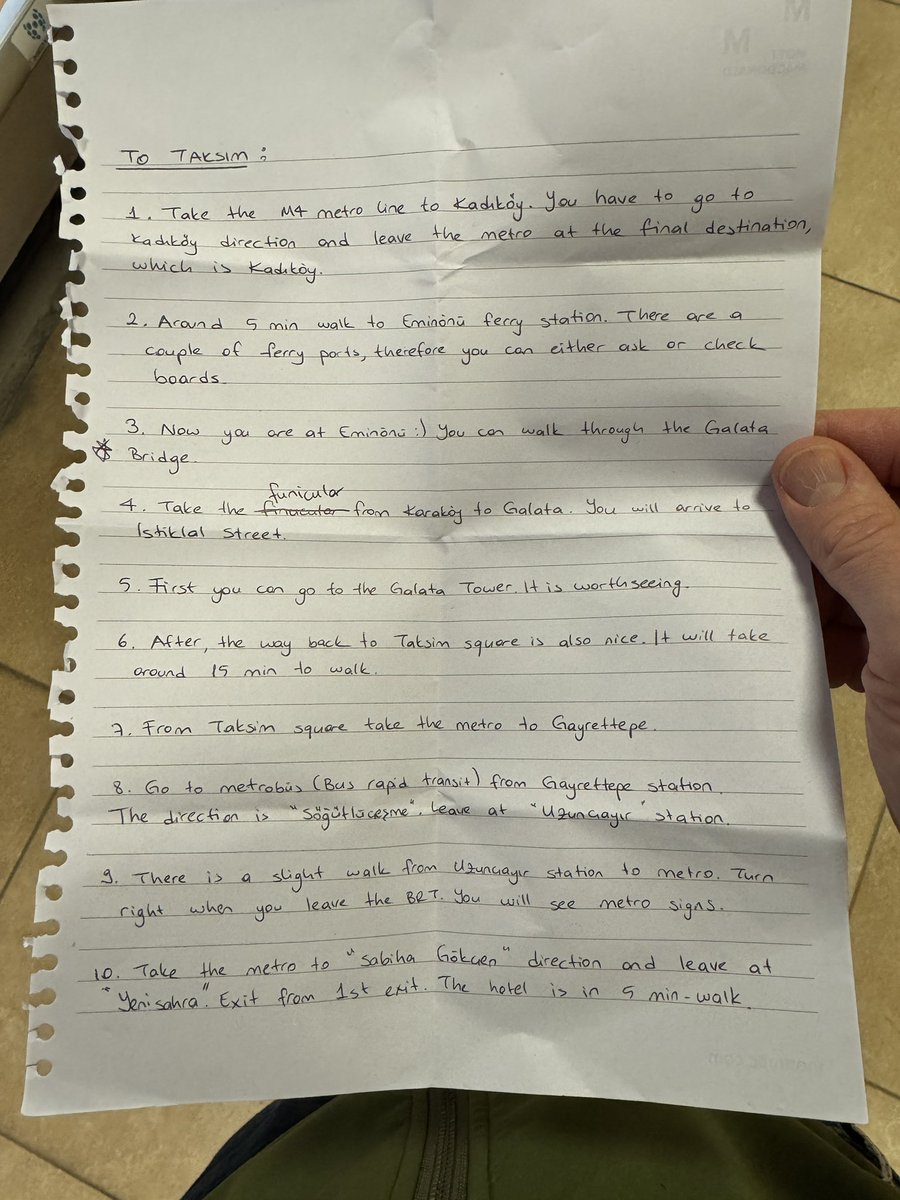 TO TAKSIM :
1. Take the M4 metro line to Kadıköy. You have to go to
Kadıköy direction and leave the metro at the final destination,
which is Kadıköy.
2. Around 5 min walk to Eminönü ferry station. There are a
couple of ferry ports, therefore you can either ask or check
boards.
3. Now you are at Eminönü :) You can walk through the Galata
Bridge.
funicular
4. Take the finucular from Karaköy to Galata. You will arrive to
Istiklal Street.
5. First you can go to the Galata Tower. It is worthseeing.
6. After, the way back to Taksim square is also nice. It will take
around 15 min to walk.
7. From Taksim square take the metro to Gayrettepe.
8. Go to metrobüs (Bus rapid transit) from Gayrettepe station.
The direction is "Söğütlüçeşme". Leave at "Uzunçayır" station.
9. There is a slight walk from Uzunçayır station to metro. Turn
right when you leave the BRT. You will see metro signs.
10. Take the metro to "Sabiha Gökçen" direction and leave at
"Yenisahra". Exit from 1st exit. The hotel is in 5 min-walk.